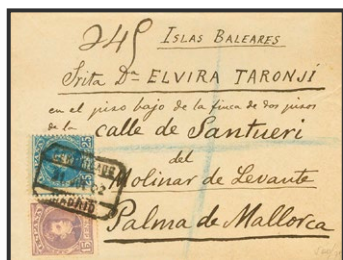 245 ISLAS BALEARES
Srita Dª ELVIRA TARONJÍ
en el piso bajo de la finca de dos pisos
de la calle de Santueri
del
Molinar de Levante
Palma de Mallorca
25
MADRID
15